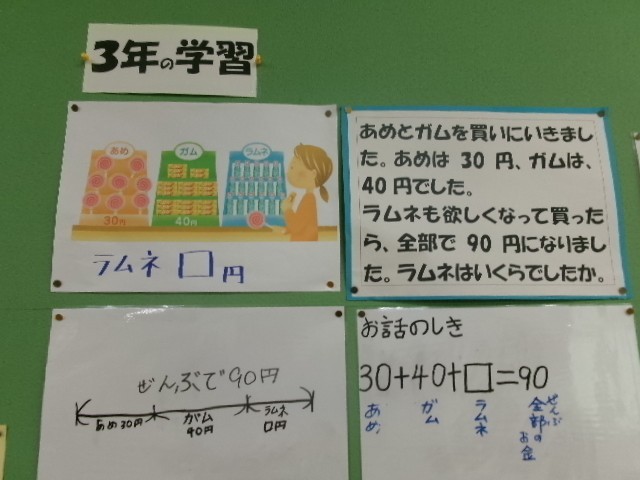 3年の学習
あめ
ガム
ラムネ
30円
40円
ラムネ □円
あめとガムを買いにいきまし
た。あめは 30 円、ガムは、
40円でした。
ラムネも欲しくなって買った
ら、全部で 90 円になりまし
た。ラムネはいくらでしたか。
ぜんぶで90円
あめ30円
ガム
90円
ラムネ
□円
お話のしき
30+40+□=90
あめ
ガム
ラムネ
全部のお金
ぜんぶ